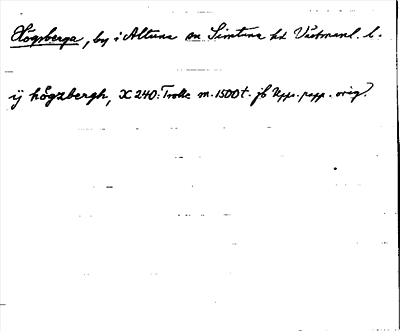 Högsberga, by i Altuna sn Simtuna hd Västmanl. l.
ÿ högzbergh, X 240: Trolle m. 1500 t. jb Upps. papp. orig.